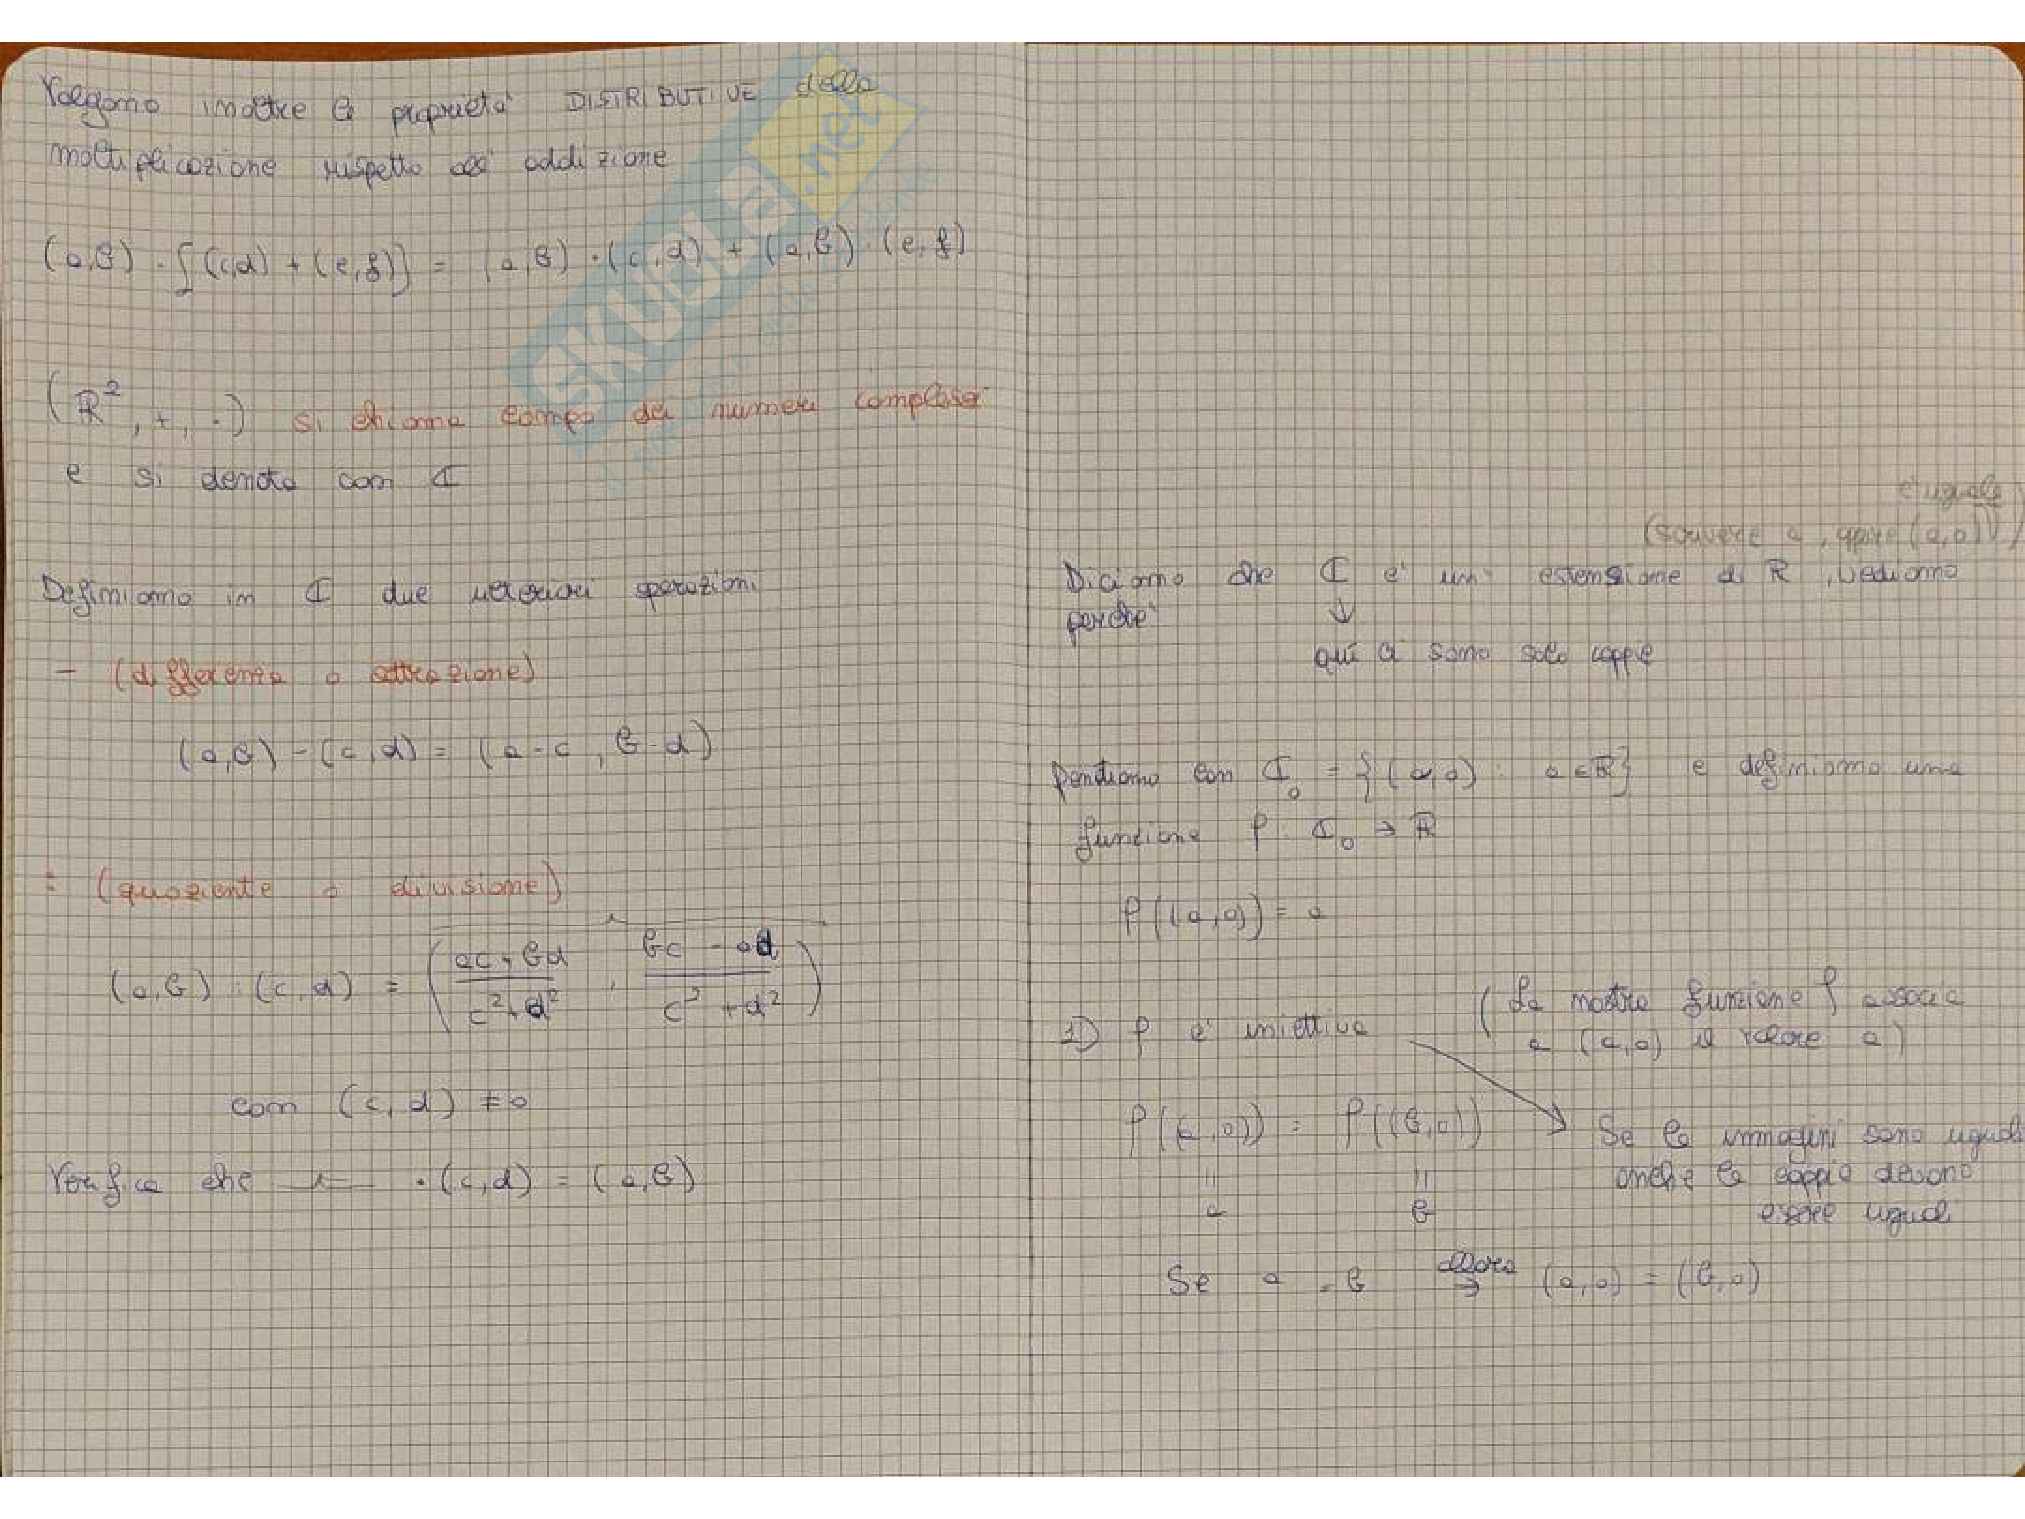 Valgono inoltre le proprietà DISTRIBUTIVE della
moltiplicazione rispetto all' addizione
(a,b) · [(c,d) + (e,f)] = (a,b) · (c,d) + (a,b) · (e,f)
(ℝ², +, ·) si chiama campo dei numeri complessi
e si denota con ℂ
Definiamo in ℂ due ulteriori operazioni
- (differenza o sottrazione)
(a,b) - (c,d) = (a-c, b-d)
: (quoziente o divisione)
(a,b) : (c,d) = ( (ac+bd)/(c²+d²) , (bc-ad)/(c²+d²) )
con (c,d) ≠ 0
Verifica che · (c,d) = (a,b)
è uguale
(scrivere a, oppure (a,0))
Diciamo che ℂ è un' estensione di ℝ, vediamo
perché ↓
qui ci sono solo coppie
Prendiamo con ℂ₀ = {(a,0) : a ∈ ℝ} e definiamo una
funzione f : ℂ₀ → ℝ
f((a,0)) = a
1) f è iniettiva
(La nostra funzione f associa
a (a,0) il valore a)
f((a,0)) = f((b,0)) → Se le immagini sono uguali
= = anche le coppie devono
a b essere uguali
Se a = b allora → (a,0) = (b,0)
SKUOLA.net